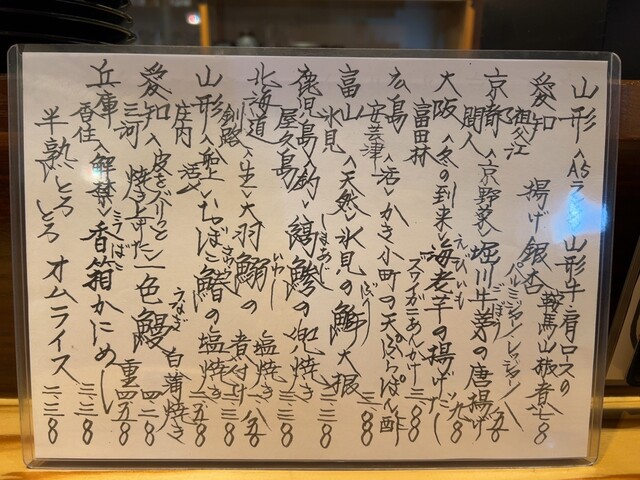 山形〈A5ランク〉山形牛 肩ロースの鞍馬山椒煮 八八〇
愛知 祖父江 揚げ銀杏 パルミジャーノレッジャーノ 八五〇
京都 間人〈京野菜〉堀川牛蒡の唐揚げ
大阪 富田林〈冬の到来〉海老芋の揚げだし 一、九八〇
ズワイガニあんかけ
広島 安芸津〈活〉かき小町の天ぷら ぽん酢 三八〇
富山 氷見〈天然〉氷見の鰤大根 二、三八〇
鹿児島 屋久島〈釣〉縞鯵の兜焼き 三三八〇
北海道 釧路〈生〉大羽鰯の塩焼き 一八五〇
煮付け 三八〇
山形 庄内〈船上活〆〉いちばこ鰆の塩焼き 三五八〇
愛知 三河〈皮をパリッと焼き上げた〉一色鰻 白蒲焼き 四二八〇
重 四五八〇
兵庫 香住〈解禁〉香箱かにめし 三三八〇
半熟とろとろ オムライス 二三八〇